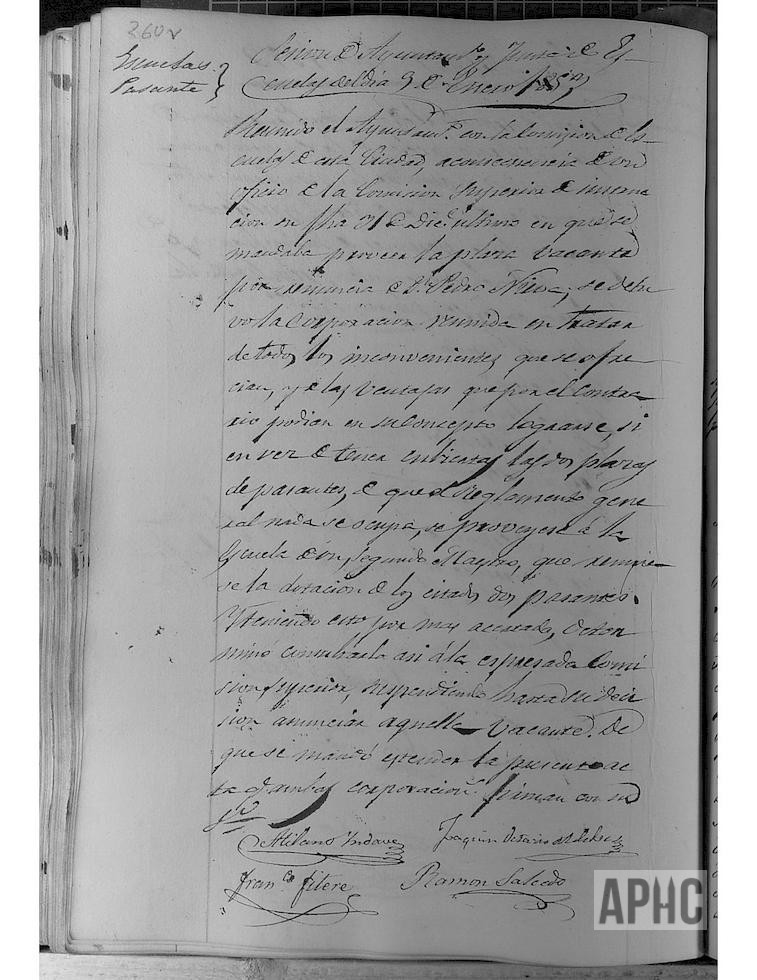 260v
Escuelas.
Pasante
Sesion de Ayuntamto y Junta de Es-
cuelas del dia 3 de Enero 185
Reunido el Ayuntamto con la Comision de Es-
cuelas de esta Ciudad, a consecuencia de un
oficio de la Comision Superior de instruc
cion su fha 31 de Dice ultimo en que se
mandaba proveer la plaza vacante
por renuncia de Dn Pedro Nieva, se detu
vo la Corporacion reunida en tratar
de todos los inconvenientes que se ofre-
cian, y de las ventajas que por el contra-
rio podian en su concepto lograrse, si
en vez de tener cubiertas las dos plazas
de pasantes, de que el Reglamento gene
ral nada se ocupa, se proveyese á la
Escuela de un segundo Maestro, que reunie-
se la dotacion de los citados dos pasantes.
Y teniendo esto por mas acertado, deter
minó consultarlo asi á la espresada Comi
sion Superior, suspendiendo hasta su deci
sion anunciar aquella vacante. De
que se mandó estender la presente ac
ta q. ambas corporacions firman con su
Atilano Yndave
Joaquin Octavio de Toledo
Franco Fitere
Ramon Salcedo
APHC